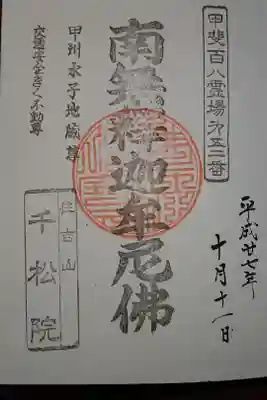 甲斐百八霊場㐧五二番
平成廿七年
十月十一日
南無釋迦牟尼佛
甲州水子地蔵尊
交通安全きく不動尊
住吉山
千松院